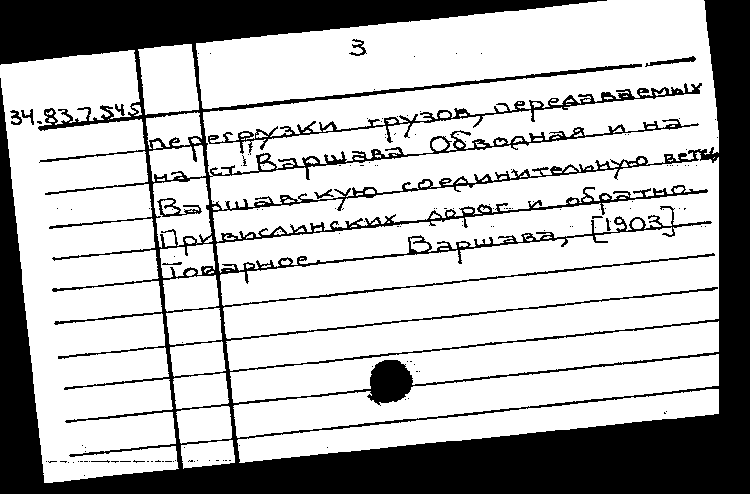 3
34.83.7.545
перегрузки грузов, передаваемых
на ст. Варшава Обводная и на
Варшавскую соединительную ветвь
Привислинских дорог и обратно.
Товарное. Варшава, [1903]